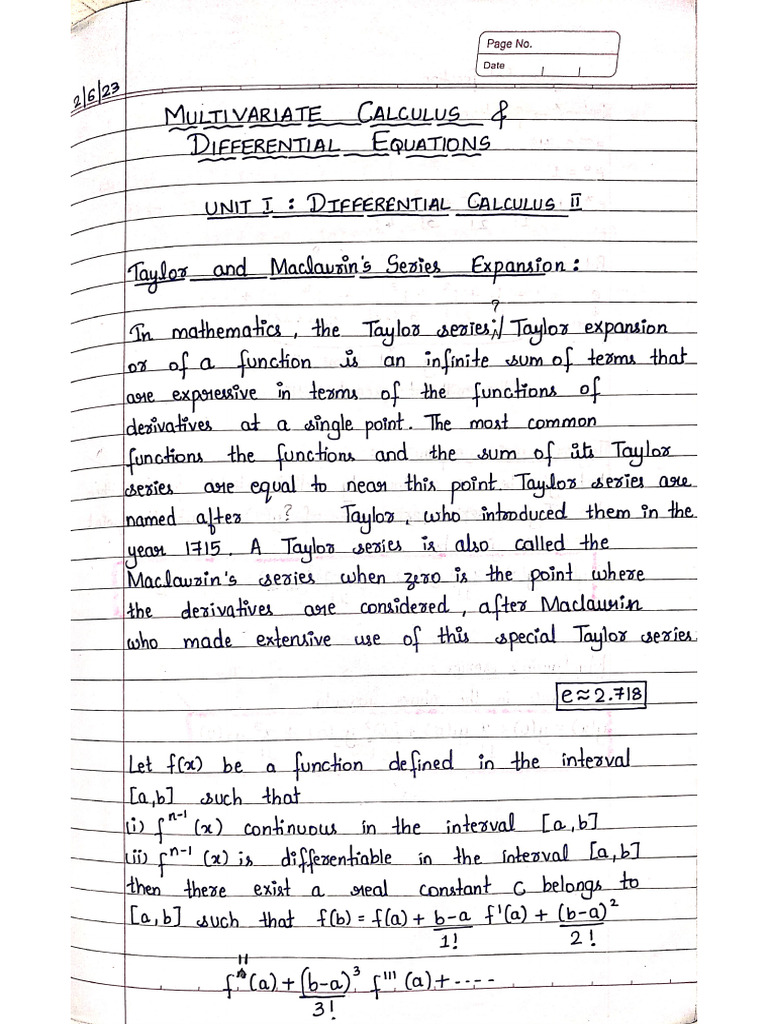 Page No.
Date
2/6/23
MULTIVARIATE CALCULUS &
DIFFERENTIAL EQUATIONS
UNIT I : DIFFERENTIAL CALCULUS II
Taylor and Maclaurin's Series Expansion:
?
In mathematics, the Taylor series, Taylor expansion
or of a function is an infinite sum of terms that
are expressive in terms of the functions of
derivatives at a single point. The most common
functions the functions and the sum of its Taylor
series are equal to near this point. Taylor series are
named after ? Taylor, who introduced them in the
year 1715. A Taylor series is also called the
Maclaurin's series when zero is the point where
the derivatives are considered, after Maclaurin
who made extensive use of this special Taylor series
e≈2.718
Let f(x) be a function defined in the interval
[a,b] such that
(i) fⁿ⁻¹(x) continuous in the interval [a,b]
(ii) fⁿ⁻¹(x) is differentiable in the interval [a,b]
then there exist a real constant C belongs to
[a,b] such that f(b) = f(a) + b-a/1! f'(a) + (b-a)²/2!
f''(a) + (b-a)³/3! f'''(a) + ----